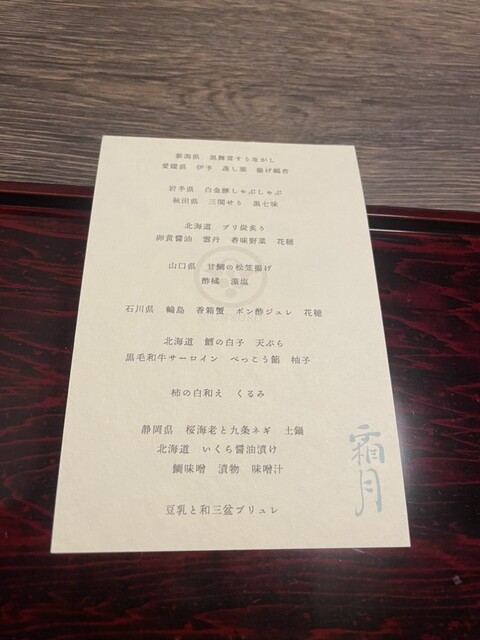 新潟県 黒舞茸すりながし
愛媛県 伊予 蒸し栗 揚げ銀杏
岩手県 白金豚しゃぶしゃぶ
秋田県 三関せり 黒七味
北海道 ブリ炭炙り
卵黄醤油 雲丹 香味野菜 花穂
山口県 甘鯛の松笠揚げ
酢橘 藻塩
石川県 輪島 香箱蟹 ポン酢ジュレ 花穂
北海道 鱈の白子 天ぷら
黒毛和牛サーロイン べっこう餡 柚子
柿の白和え くるみ
静岡県 桜海老と九条ネギ 土鍋
北海道 いくら醤油漬け
鯛味噌 漬物 味噌汁
豆乳と和三盆ブリュレ
霜月